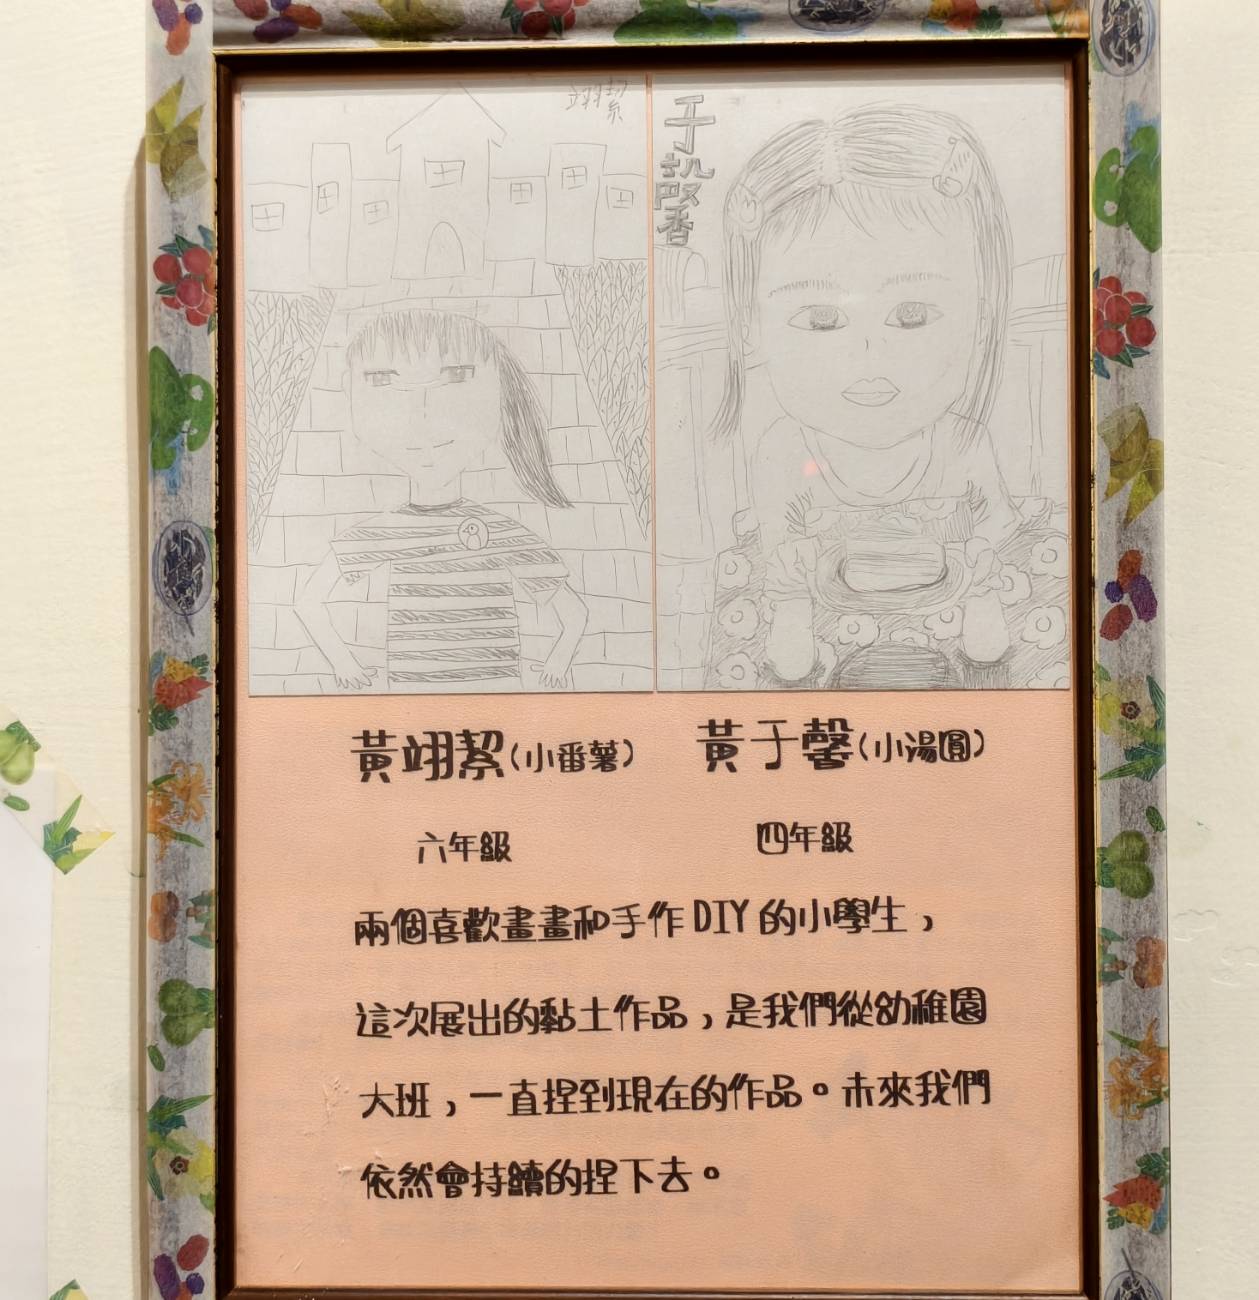 翊絜
于馨
黃翊絜(小番薯) 黃于馨(小湯圓)
六年級 四年級
兩個喜歡畫畫和手作DIY的小學生，
這次展出的黏土作品，是我們從幼稚園
大班，一直捏到現在的作品。未來我們
依然會持續的捏下去。